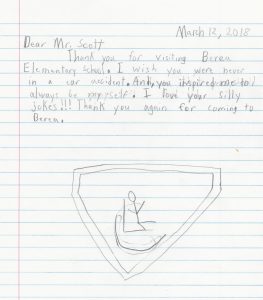 March 12, 2018
Dear Mr. Scott
Thank you for visiting Berea
Elementary school. I wish you were never
in a car accident. And, you inspired me to
always be myself. I love your silly
jokes!!! Thank you again for coming to
Berea.